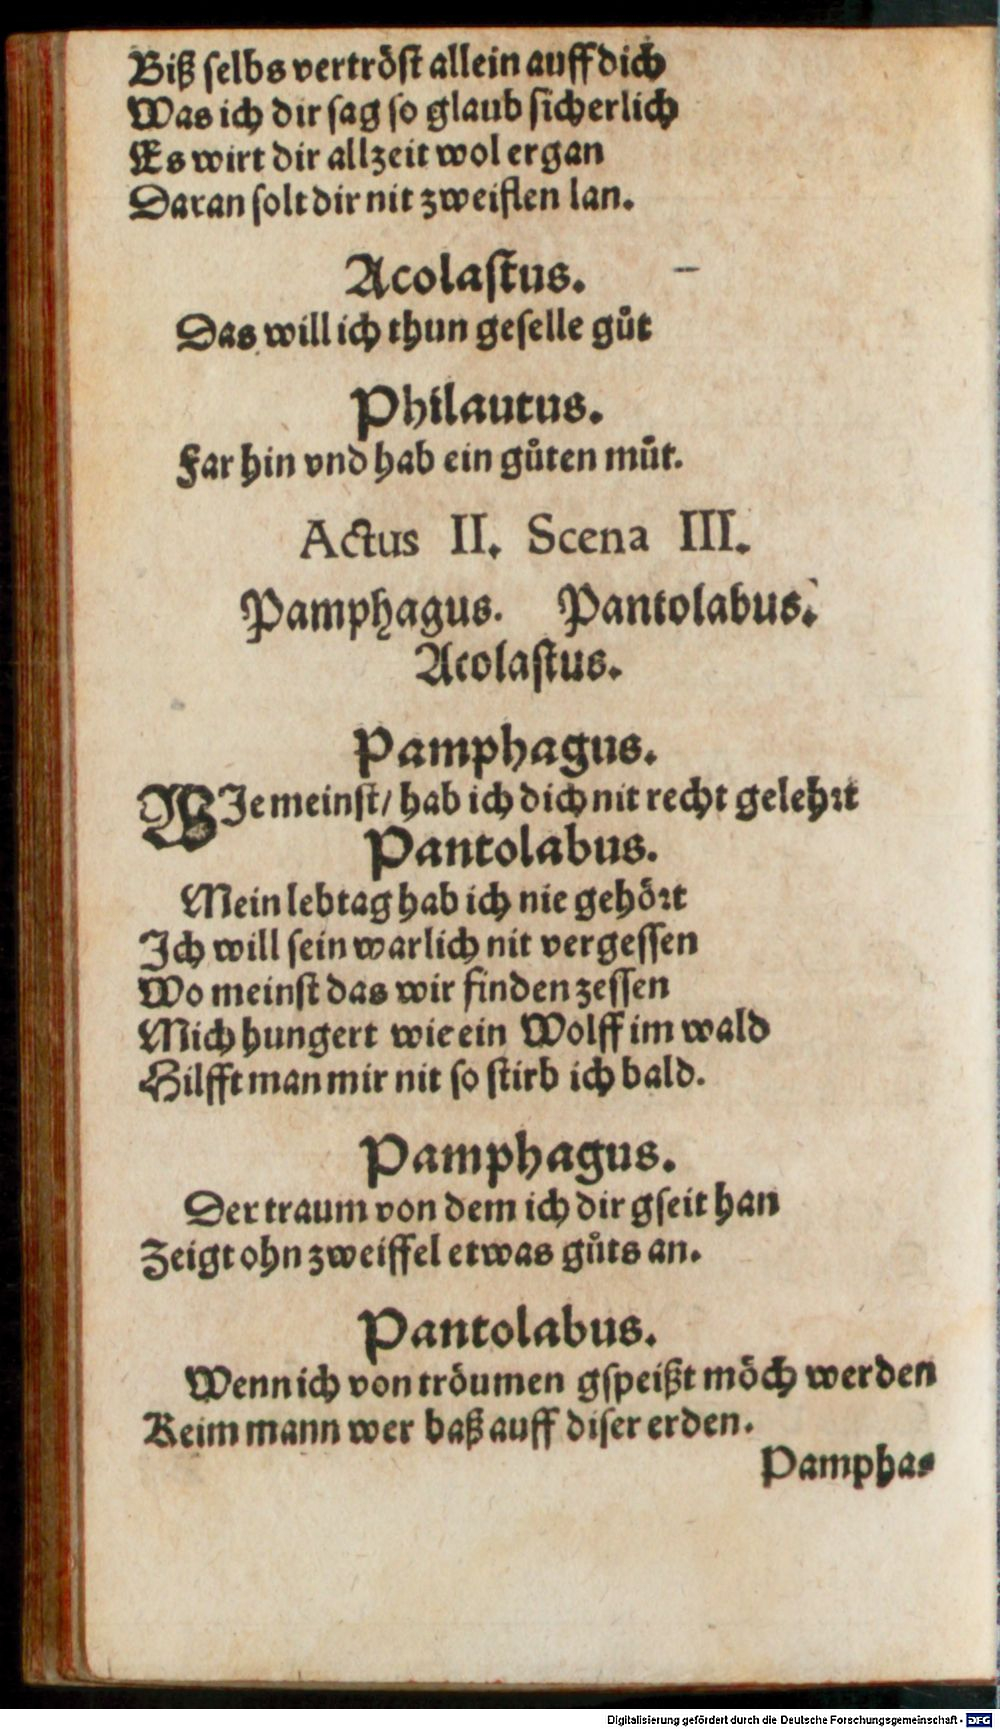 Biß selbs vertröst allein auff dich
Was ich dir sag so glaub sicherlich
Es wirt dir allzeit wol ergan
Daran solt dir nit zweiflen lan.
Acolastus.
Das will ich thun geselle guͦt
Philautus.
Far hin vnd hab ein guͦten muͦt.
Actus II. Scena III.
Pamphagus. Pantolabus.
Acolastus.
Pamphagus.
WIe meinst/ hab ich dich nit recht gelehrt
Pantolabus.
Mein lebtag hab ich nie gehört
Ich will sein warlich nit vergessen
Wo meinst das wir finden zessen
Mich hungert wie ein Wolff im wald
Hilfft man mir nit so stirb ich bald.
Pamphagus.
Der traum von dem ich dir gseit han
Zeigt ohn zweiffel etwas guͦts an.
Pantolabus.
Wenn ich von tröumen gspeißt möch werden
Keim mann wer baß auff diser erden.
Pampha-
Digitalisierung gefördert durch die Deutsche Forschungsgemeinschaft - DFG